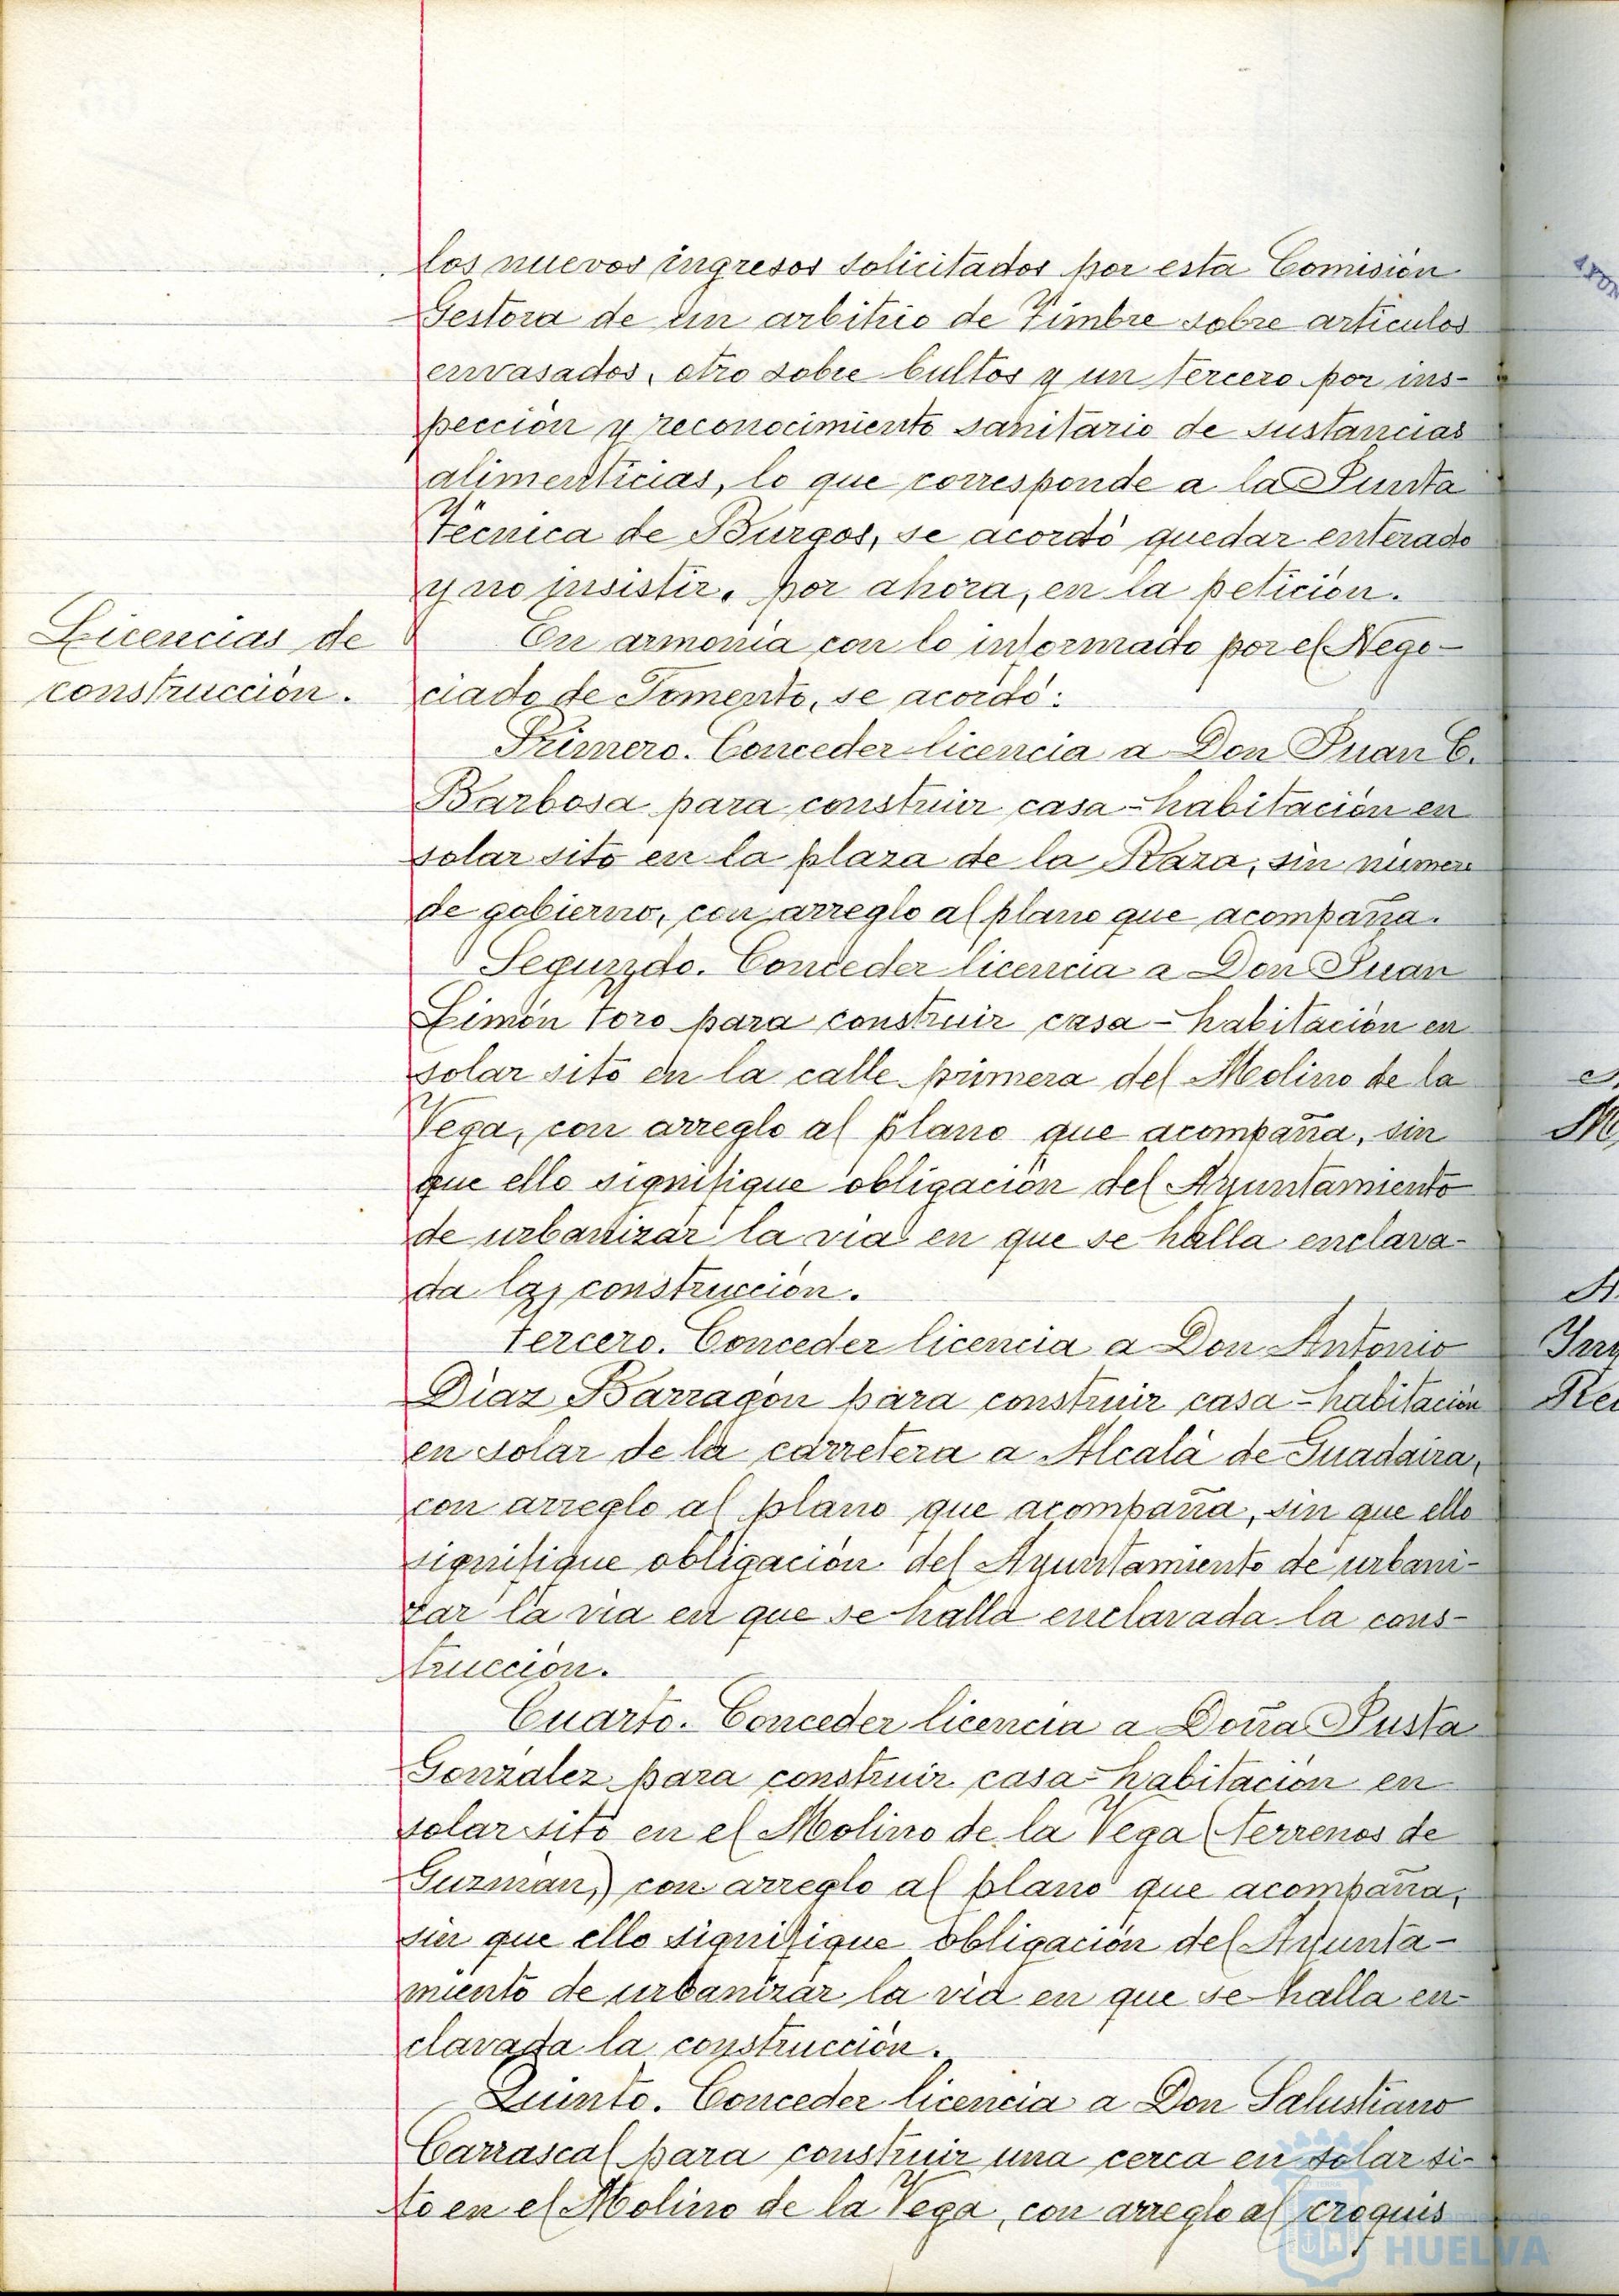 los nuevos ingresos solicitados por esta Comisión
Gestora de un arbitrio de Timbre sobre artículos
envasados, otro sobre bultos y un tercero por ins-
pección y reconocimiento sanitario de sustancias
alimenticias, lo que corresponde a la Junta
Técnica de Burgos, se acordó quedar enterado
y no insistir, por ahora, en la petición.
Licencias de
construcción.
En armonía con lo informado por el Nego-
ciado de Fomento, se acordó:
Primero. Conceder licencia a Don Juan C.
Barbosa para construir casa-habitación en
solar sito en la plaza de la Raza, sin número
de gobierno, con arreglo al plano que acompaña.
Segundo. Conceder licencia a Don Juan
Limón Toro para construir casa-habitación en
solar sito en la calle primera del Molino de la
Vega, con arreglo al plano que acompaña, sin
que ello signifique obligación del Ayuntamiento
de urbanizar la vía en que se halla enclava-
da la construcción.
Tercero. Conceder licencia a Don Antonio
Díaz Barragón para construir casa-habitación
en solar de la carretera a Alcalá de Guadaira,
con arreglo al plano que acompaña, sin que ello
signifique obligación del Ayuntamiento de urbani-
zar la vía en que se halla enclavada la cons-
trucción.
Cuarto. Conceder licencia a Doña Justa
González para construir casa-habitación en
solar sito en el Molino de la Vega (terrenos de
Guzmán,) con arreglo al plano que acompaña,
sin que ello signifique obligación del Ayunta-
miento de urbanizar la vía en que se halla en-
clavada la construcción.
Quinto. Conceder licencia a Don Salustiano
Carrascal para construir una cerca en solar si-
to en el Molino de la Vega, con arreglo al croquis
HUELVA